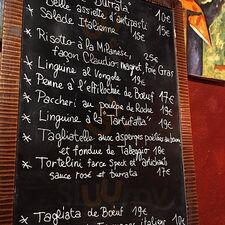 Burrata 10€
* Belle assiette d'antipasti 15€
* Salade Italienne 15€
* Risotto à la Milanese, 25€
façon Claudio: magret, foie Gras
* Linguine al Vongole 19€
* Penne à l'effilochée de Bœuf 17€
* Paccheri au poulpe de Roche 19€
* Linguine à la Tartufata 19€
* Tagliatelle aux asperges
et fondue de Taleggio 18€
* Tortelini farce Speck et artichauts
sauce rosé et burrata 17€
* Tagliata de Bœuf 19€